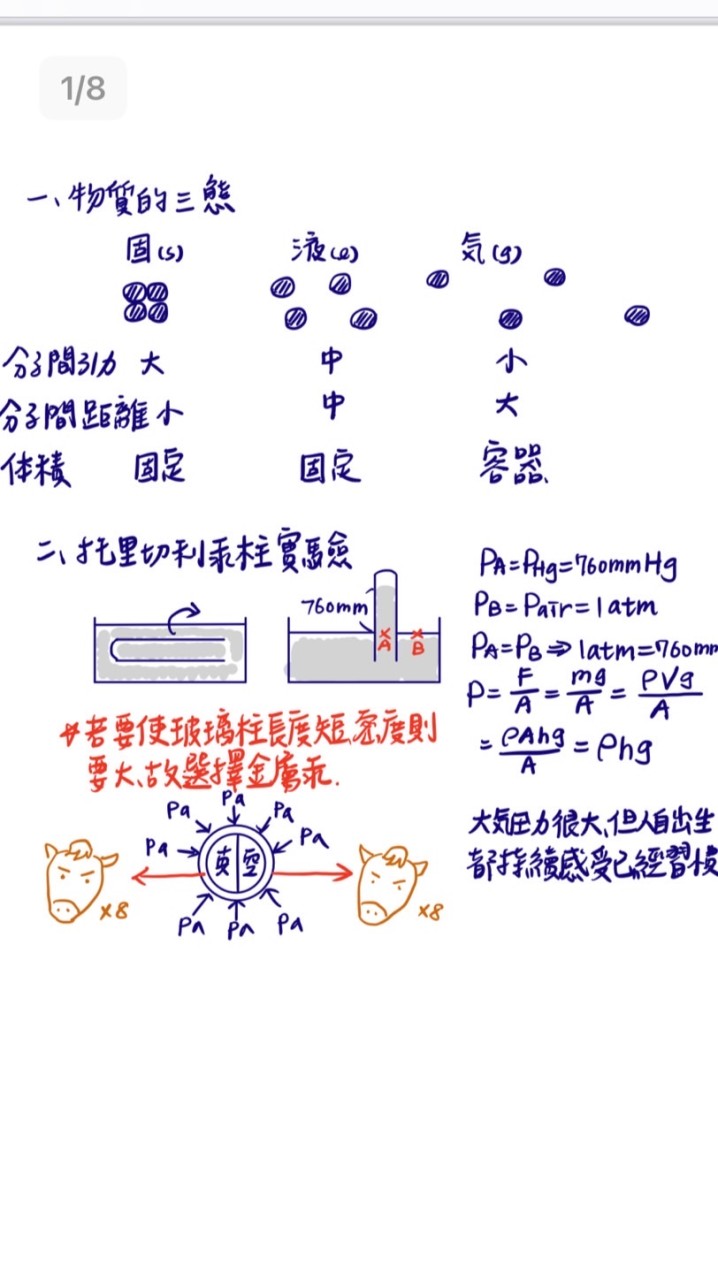 1/8
一、物質的三態
固(s) 液(ℓ) 気(g)
分子間引力 大 中 小
分子間距離 小 中 大
体積 固定 固定 容器
二、托里切利汞柱實驗
760mm
A B
PA=PHg=760mmHg
PB=Pair=1atm
PA=PB⇒1atm=760mm
P=F/A=mg/A=ρVg/A
=ρAhg/A=ρhg
若要使玻璃柱長度短、密度則
要大、故選擇金屬汞.
Pa Pa Pa
Pa Pa
真空
×8 ×8
Pa Pa Pa
大気圧力很大、但人自出生
都持續感受已經習慣